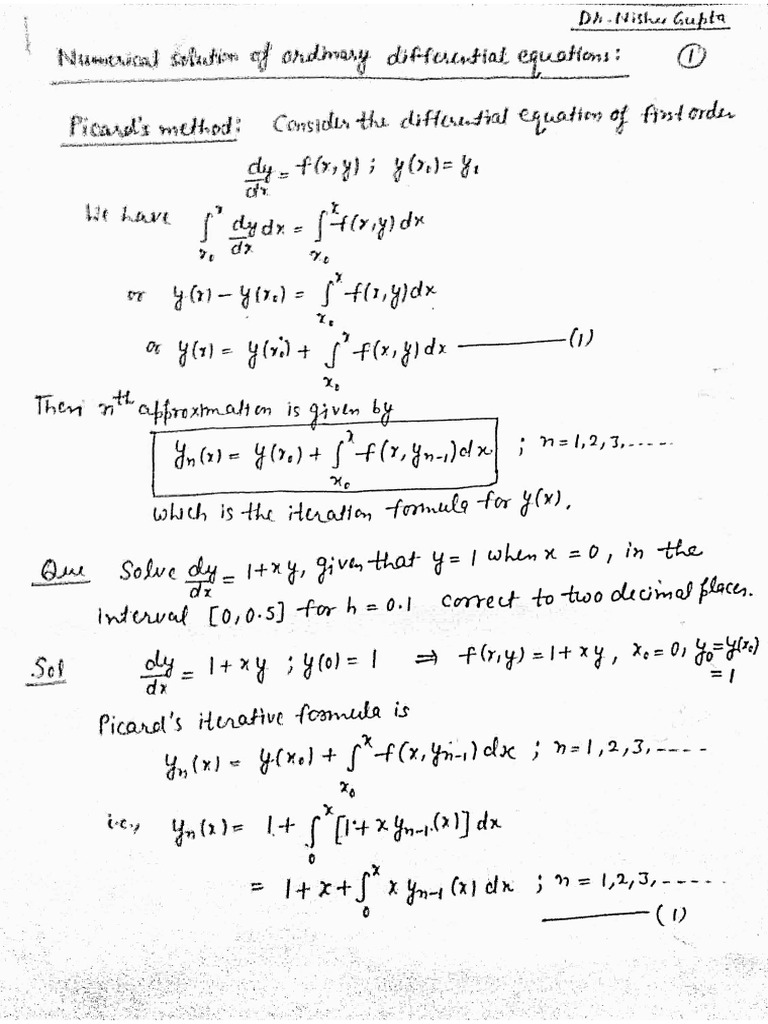 Dr. Nisha Gupta
Numerical solution of ordinary differential equations: ①
Picard's method: Consider the differential equation of first order
dy/dx = f(x,y) ; y(x₀) = y₀
We have ∫_{x₀}^{x} dy/dx dx = ∫_{x₀}^{x} f(x,y) dx
or y(x) - y(x₀) = ∫_{x₀}^{x} f(x,y) dx
or y(x) = y(x₀) + ∫_{x₀}^{x} f(x,y) dx ———— (1)
Then nᵗʰ approximation is given by
yₙ(x) = y(x₀) + ∫_{x₀}^{x} f(x, yₙ₋₁) dx ; n = 1,2,3,.....
which is the iteration formula for y(x).
Que Solve dy/dx = 1+xy, given that y = 1 when x = 0, in the
interval [0, 0.5] for h = 0.1 correct to two decimal places.
Sol dy/dx = 1+xy ; y(0) = 1 ⇒ f(x,y) = 1+xy, x₀=0, y₀=y(x₀)
= 1
Picard's iterative formula is
yₙ(x) = y(x₀) + ∫_{x₀}^{x} f(x, yₙ₋₁) dx ; n = 1,2,3,-----
i.e., yₙ(x) = 1 + ∫_{0}^{x} [1+x yₙ₋₁(x)] dx
= 1 + x + ∫_{0}^{x} x yₙ₋₁(x) dx ; n = 1,2,3,------
———— (1)